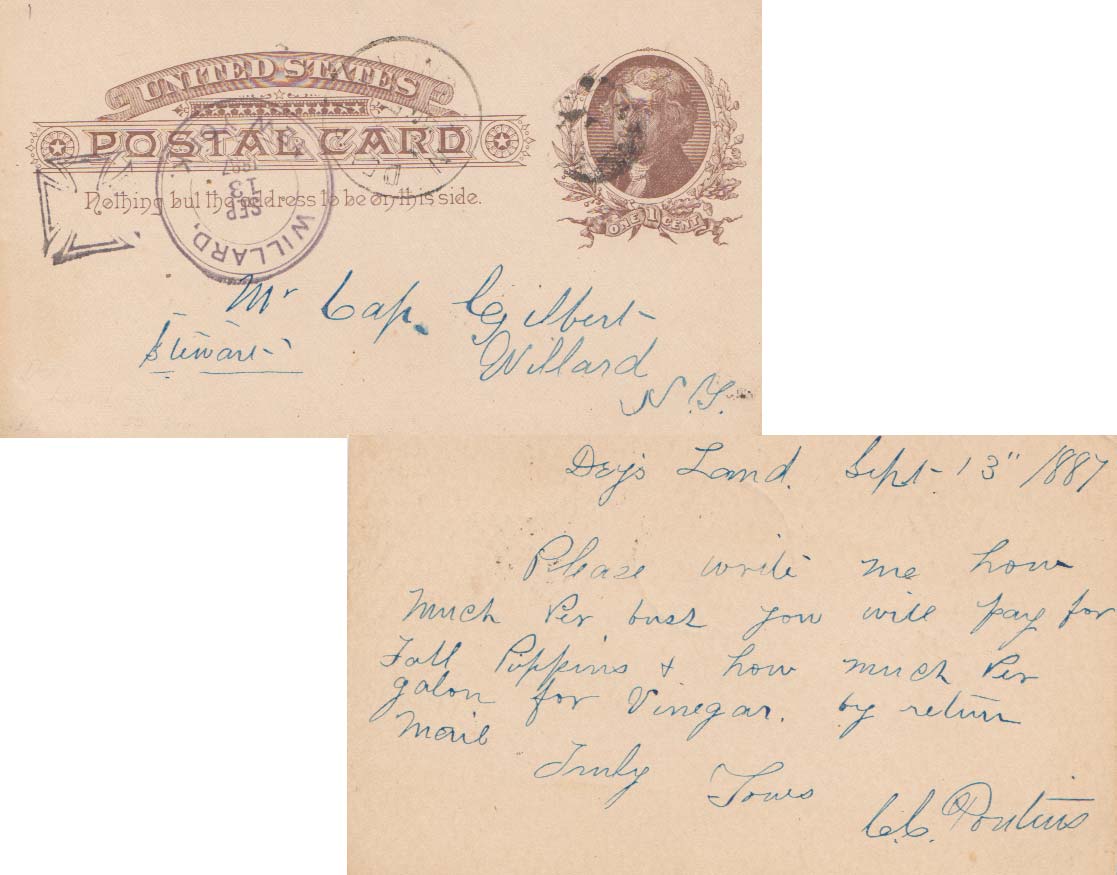 UNITED STATES
POSTAL CARD
Nothing but the address to be on this side.
ONE 1 CENT
WILLARD, N.Y.
SEP
13
1887
Mr Cap. Gilbert
Stewart
Willard
N Y.
Dey's Land. Sept 13" 1887
Please write me how
Much Per bush you will pay for
Fall Pippins & how much Per
galon for Vinegar. by return
Mail
Truly Yours
C.C. Pontius